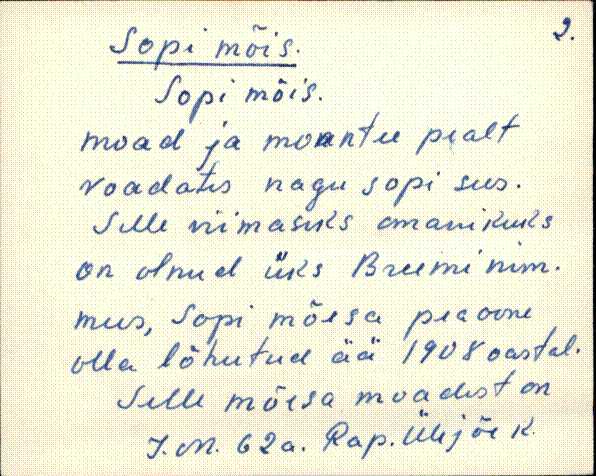 2.
Sopi mõis.
Sopi mõis.
moad ja moantee pealt
voadates nagu sopi sees.
Selle viimaseks omanikuks
on olnud üks Breemi nim.
mees, Sopi mõesa peaoone
olla lõhutud ää 1908 oastal.
Selle mõesa moadest on
J.M. 62a. Rap. Ülejõe k.